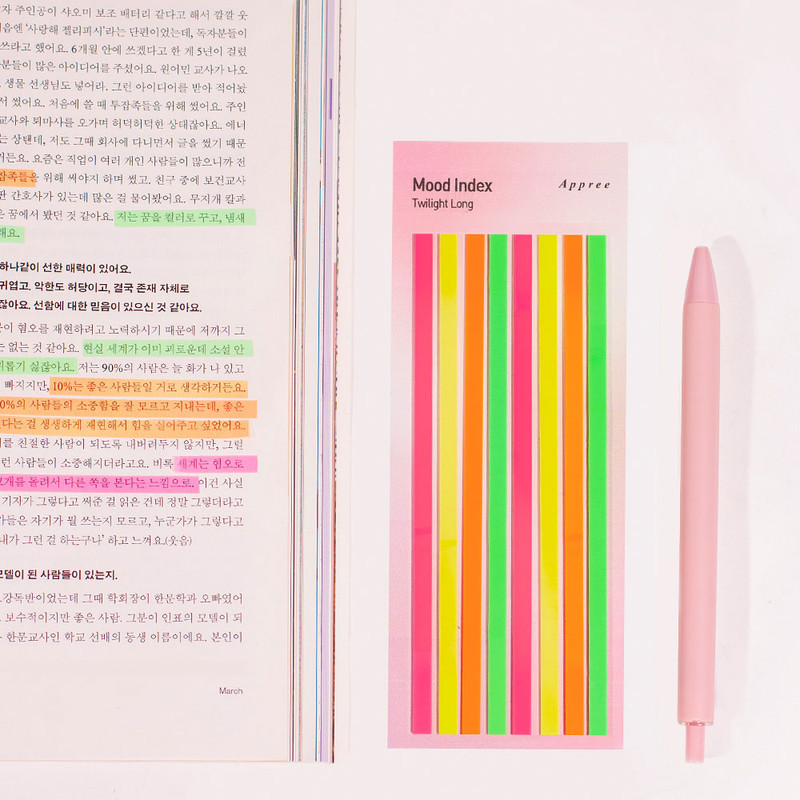 자 주인공이 샤오미 보조 배터리 같다고 해서 깔깔 웃
음엔 '사랑해 젤리피시'라는 단편이었는데, 독자분들이
쓰라고 했어요. 6개월 안에 쓰겠다고 한 게 5년이 걸렸
분들이 많은 아이디어를 주셨어요. 원어민 교사가 나오
생물 선생님도 넣어라. 그런 아이디어를 받아 적어놨
서 썼어요. 처음에 쓸 때 투잡족들을 위해 썼어요. 주인
교사와 퇴마사를 오가며 허덕허덕한 상태잖아요. 에너
는 상탠데, 저도 그때 회사에 다니면서 글을 썼기 때문
거든요. 요즘은 직업이 여러 개인 사람들이 많으니까 전
잡족들을 위해 써야지 하며 썼고. 친구 중에 보건교사
간호사가 있는데 많은 걸 물어봤어요. 무지개 칼과
은 꿈에서 봤던 것 같아요. 저는 꿈을 컬러로 꾸고, 냄새
래요.
하나같이 선한 매력이 있어요.
귀엽고. 악한도 허당이고, 결국 존재 자체로
잖아요. 선함에 대한 믿음이 있으신 것 같아요.
분이 혐오를 재현하려고 노력하시기 때문에 저까지 그
는 없는 것 같아요. 현실 세계가 이미 괴로운데 소설 안
괴롭기 싫잖아요. 저는 90%의 사람은 늘 화가 나 있고
빠지지만, 10%는 좋은 사람들일 거로 생각하거든요.
0%의 사람들의 소중함을 잘 모르고 지내는데, 좋은
다는 걸 생생하게 재현해서 힘을 실어주고 싶었어요.
를 친절한 사람이 되도록 내버려두지 않지만, 그럴
런 사람들이 소중해지더라고요. 비록 세계는 혐오로
고개를 돌려서 다른 쪽을 본다는 느낌으로. 이건 사실
기자가 그렇다고 써준 걸 읽은 건데 정말 그렇더라고
가들은 자기가 뭘 쓰는지 모르고, 누군가가 그렇다고
'내가 그런 걸 하는구나' 하고 느껴요.(웃음)
모델이 된 사람들이 있는지.
강독반이었는데 그때 학회장이 한문학과 오빠였어
보수적이지만 좋은 사람. 그분이 인표의 모델이 되
한문교사인 학교 선배의 동생 이름이에요. 본인이
March
Mood Index
Appree
Twilight Long